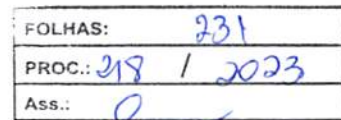 FOLHAS: 231
PROC.: 218 / 2023
Ass.: